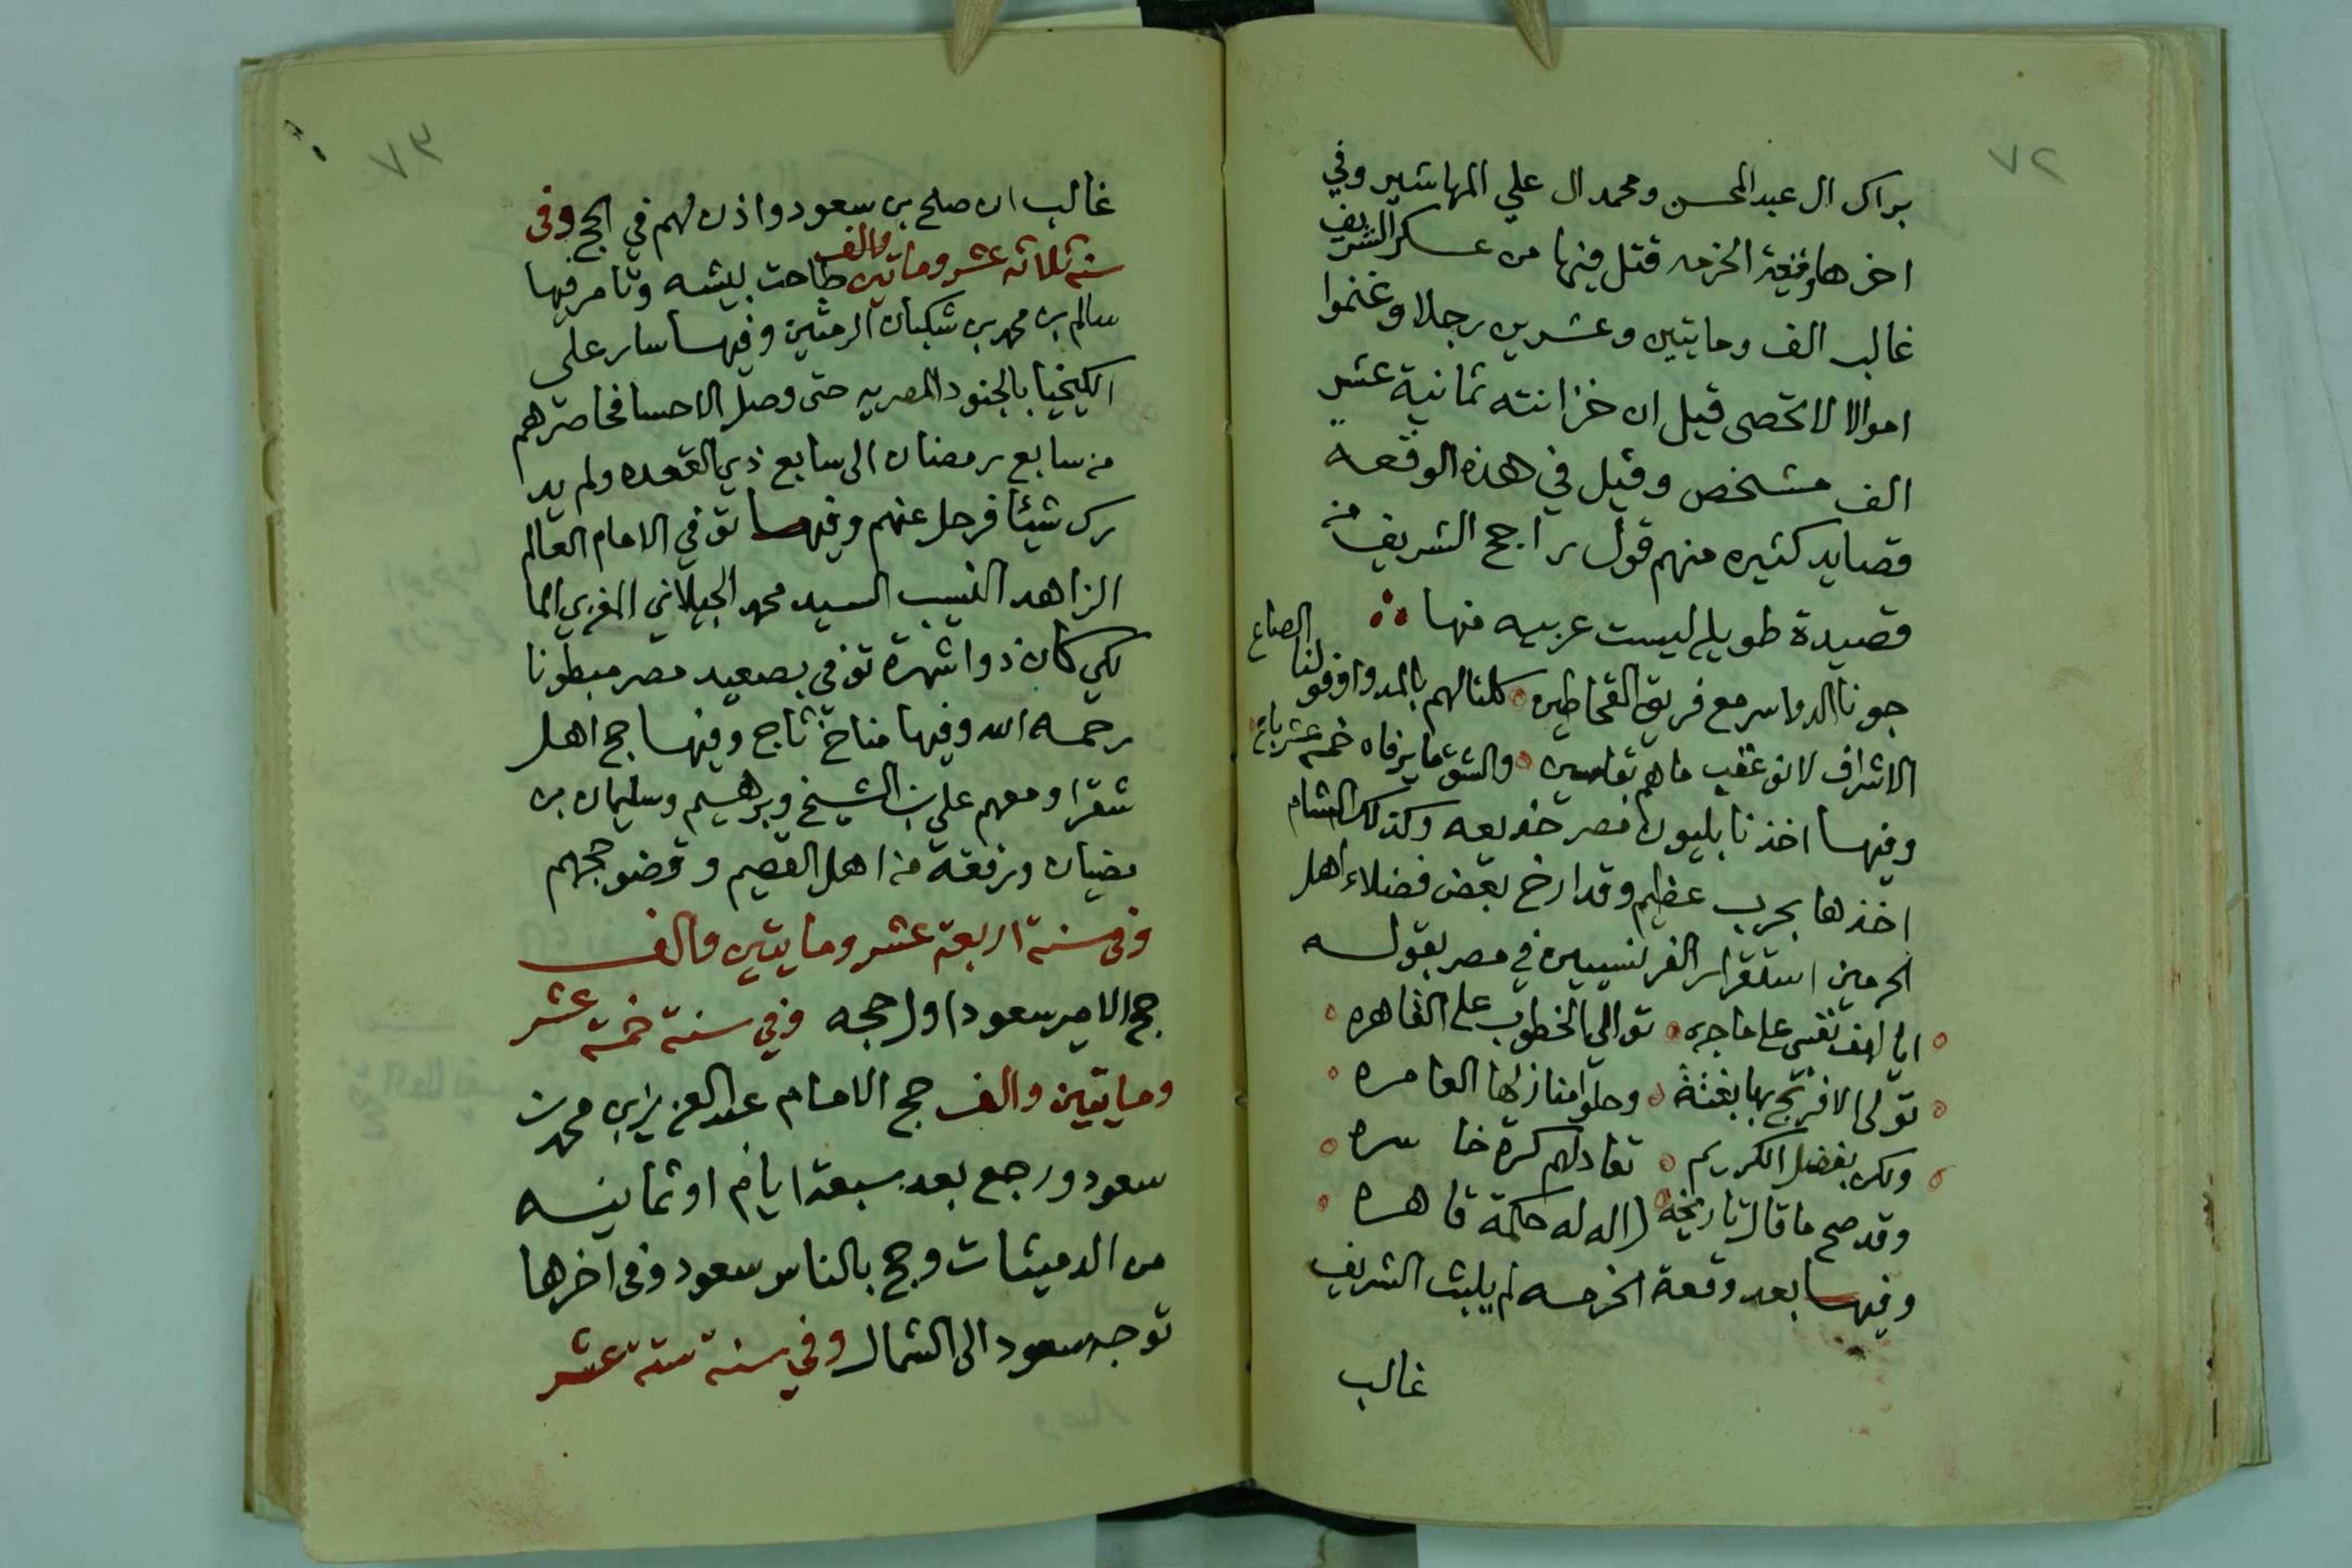 ٧٢
براك ال عبد المحسن ومحمد ال علي المهاشير وفي
اخرها وقعة الخرمه قتل فيها من عسكر الشريف
غالب الف ومايتين وعشرين رجلا وغنموا
اموالا لا تحصى قيل ان خزانته ثمانية عشر
الف مشخص وقيل في هذه الوقعه
قصايد كثيره منهم قول راجح الشريف من
قصيدة طويله ليست عربيه منها
جونا الدواسر مع فريق القحاطين كلنا لهم بالمد واوفوا لنا الصاع
الاشراف لانو عقب ماهم بقاسين والشق ما يرفاه خمسة عشر باع
وفيها اخذ نابليون مصر خديعه وكذلك الشام
اخذها بحرب عظيم وقد ارخ بعض فضلاء اهل
الحرمين استقرار الفرنسيين في مصر بقوله
ايا لهف نفسي على ما جرى توالي الخطوب على القاهره
تولى الافرنج بها بغتة وحلوا منازلها العامره
ولكن بفضل الكريم تعادلهم كرة خاسره
وقد صح ما قال تاريخه اله له حكمة قاهره
وفيها بعد وقعة الخرمه لم يلبث الشريف
غالب
٧٣
غالب ان صلح بن سعود واذن لهم في الحج وفى
سنة ثلاثة عشر وماتين والف طاحت بيشه وتامر فيها
سالم بن محمد بن شكبان الرمثين وفيها سار علي
الكيخيا بالجنود المصريه حتى وصل الاحسا فحاصرهم
من سابع رمضان الى سابع ذي القعده ولم يد
رك شيئا فرحل عنهم وفيها توفي الامام العالم
الزاهد النسيب السيد محمد الجيلاني المغربي الما
لكي كان ذوا شهرة توفي بصعيد مصر مبطونا
رحمه الله وفيها مناخ ثاج وفيها حج اهل
شقرا ومعهم علي بن الشيخ وبرهيم وسليمان بن
مضيان ورفقة من اهل القصيم وقضو حجهم
وفى سنة اربعة عشر ومايتين والف
حج الامير سعود اول حجه وفي سنة خمسة عشر
ومايتين والف حج الامام عبد العزيز بن محمد بن
سعود ورجع بعد سبعة ايام او ثمانيه
من الدميثات وحج بالناس سعود وفى اخرها
توجه سعود الى الشمال وفي سنة ستة عشر